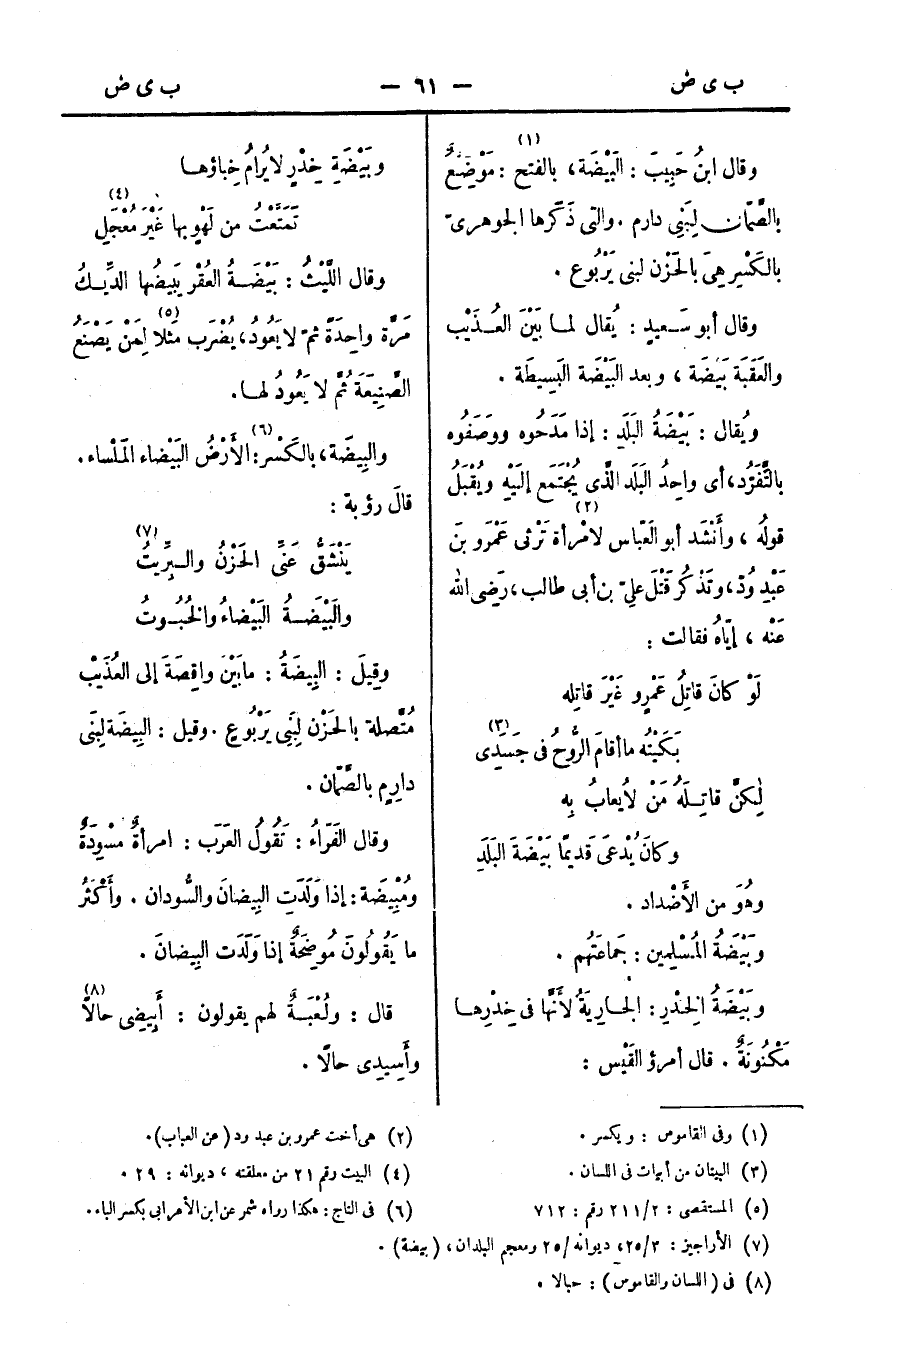 ب ى ض — ٦١ — ب ى ض
(١)
وقال ابنُ حَبِيبَ : البَيْضَة، بالفتح : مَوْضِعٌ
بالصَّمّان لِبَنِى دارم . والتى ذَكَرها الجوهرىّ
بالكَسْرِ هِىَ بالحَزْن لبنى يَرْبُوع .
وقال أبو سَعيدٍ : يُقال لما بَيْنَ العُذَيْب
والعَقَبَة بَيْضَة ، وبعد البَيْضَة البَسِيطَة .
ويُقال : بَيْضَةُ البَلَدِ : إذا مَدَحُوه ووَصَفُوه
بالتَّفَرُّد، أى واحِدُ البَلَد الَّذى يُجْتَمَع إلَيْهِ ويُقْبَلُ
(٢)
قولُه ، وأَنْشَد أبو العَبّاس لامْرأة تَرْثى عَمْرَو بنَ
عَبْدِ وُدّ، وتَذْكر قَتْلَ علىّ بن أبى طالب، رَضِى الله
عَنْه ، إيّاهُ فقالت :
لَوْ كانَ قاتِلُ عَمْرٍو غَيْرَ قاتِله
بَكَيْتُه ما أقامَ الرُّوحُ فى جَسَدِى (٣)
لٰكِنَّ قاتِلَهُ مَنْ لا يُعابُ بِه
وكانَ يُدْعَى قَدِيمًا بَيْضَةَ البَلَدِ
وهُوَ من الأَضْداد .
وبَيْضَةُ المُسْلِمِين : جَماعَتُهم .
وبَيْضَةُ الخِدْرِ : الجارِيَةُ لأَنَّها فى خِدْرِها
مَكْنُونَةٌ . قال أمرؤ القَيْس :
وبَيْضَةِ خِدْرٍ لا يُرامُ خِباؤها
تَمَتَّعْتُ من لَهْوٍ بها غَيْرَ مُعْجَلِ (٤)
وقال اللَّيْثُ : بَيْضَةُ العُقْر يَبِيضُها الدِّيكُ
مَرَّة واحِدَةً ثمّ لا يَعُودُ، يُضْرَب مَثَلا لِمَنْ يَصْنَعُ (٥)
الصَّنِيعَةَ ثُمَّ لا يَعُودُ لها.
والبِيضَة، بالكَسْر: الأَرْضُ البَيْضاء المَلْساء. (٦)
قالَ رؤبة :
يَنْشَقُّ عَنِّى الحَزْنُ والبِرِّيتُ (٧)
والبَيْضَةُ البَيْضاءُ والخُبُوتُ
وقِيلَ : البِيضَةُ : مابَيْنَ واقِصَةَ إلى العُذَيْب
مُتَّصلة بالحَزْن لِبَنِى يَرْبُوعٍ . وقيل : البِيضَة لِبَنى
دارِمٍ بالصَّمّان .
وقال الفَرّاءُ : تَقُولُ العَرَب : امرأةٌ مُسْوِدَةٌ
ومُبِيضَة : إذا وَلَدَتِ البِيضانَ والسُّودان . وأَكْثَرُ
ما يَقُولُونَ مُوضِحَةٌ إذا وَلَدَت البِيضانَ .
قال : ولُعْبَةٌ لهم يقولون : أَبِيضِى حالًا (٨)
وأَسِيدِى حالًا .
(١) وفى القاموس : ويكسر .
(٢) هى أخت عمرو بن عبد ود (عن العباب).
(٣) البيتان من أبيات فى اللسان .
(٤) البيت رقم ٢١ من معلقته ، ديوانه : ٢٩ .
(٥) المستقصى : ٢/٢١١ رقم : ٧١٢
(٦) فى التاج : هكذا رواه شمر عن ابن الأعرابى بكسر الباء.
(٧) الأراجيز : ٢٥/٣، ديوانه/٢٥ ومعجم البلدان ، (بيضة) .
(٨) فى (اللسان والقاموس) : حبالا .